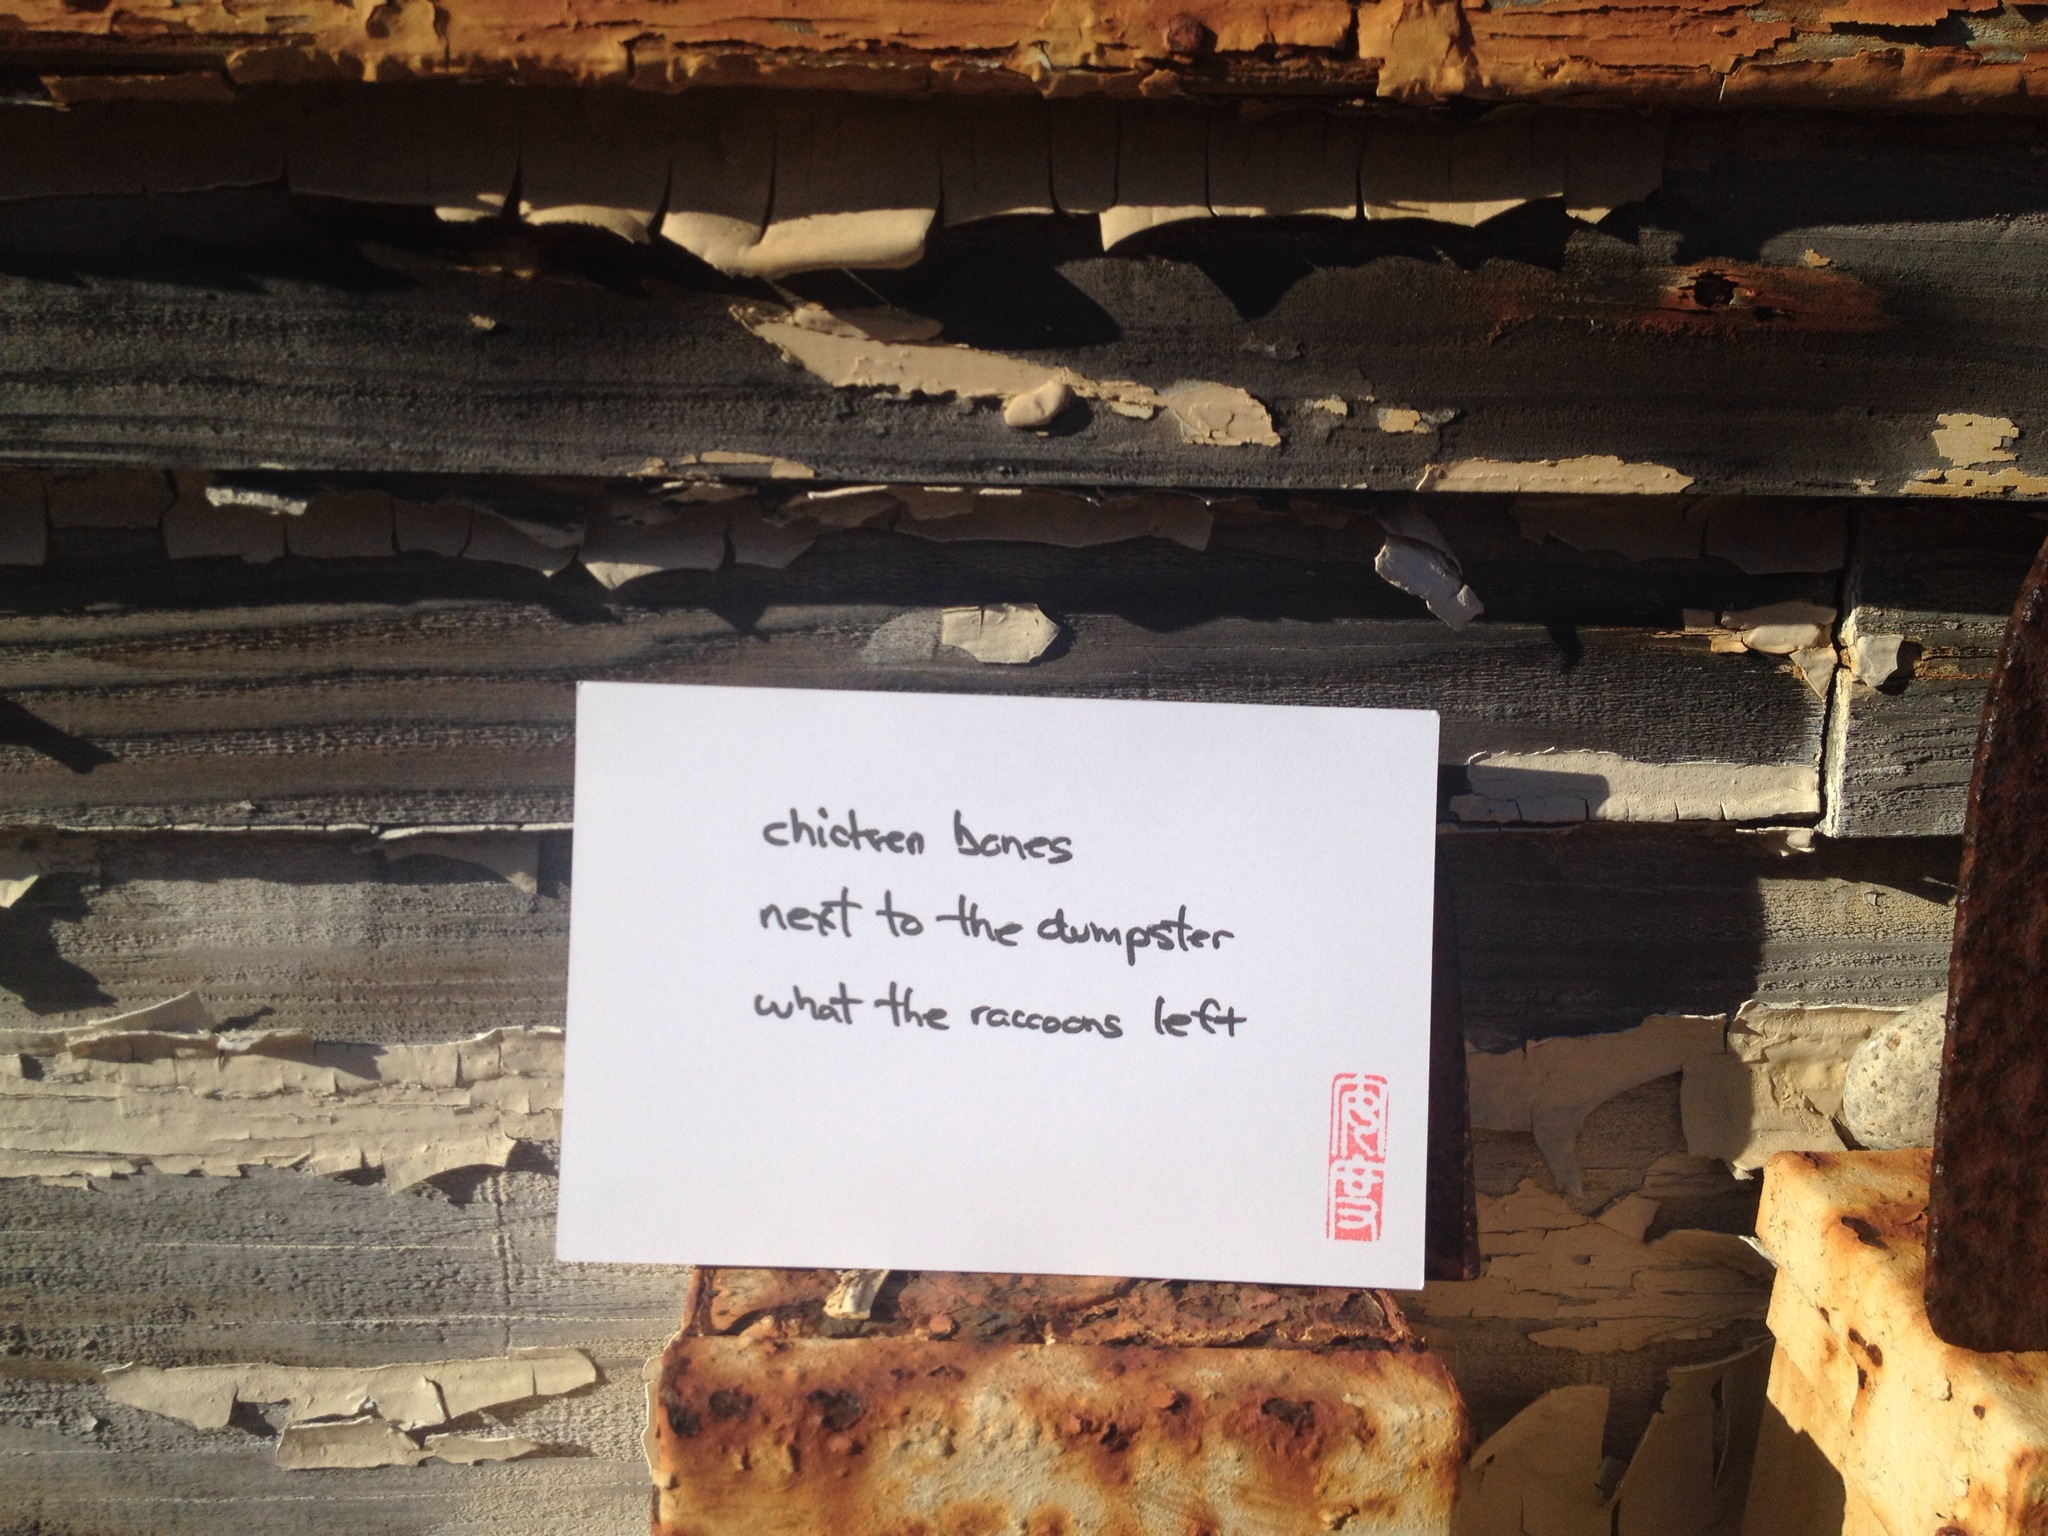 chicken bones
next to the dumpster
what the raccoons left